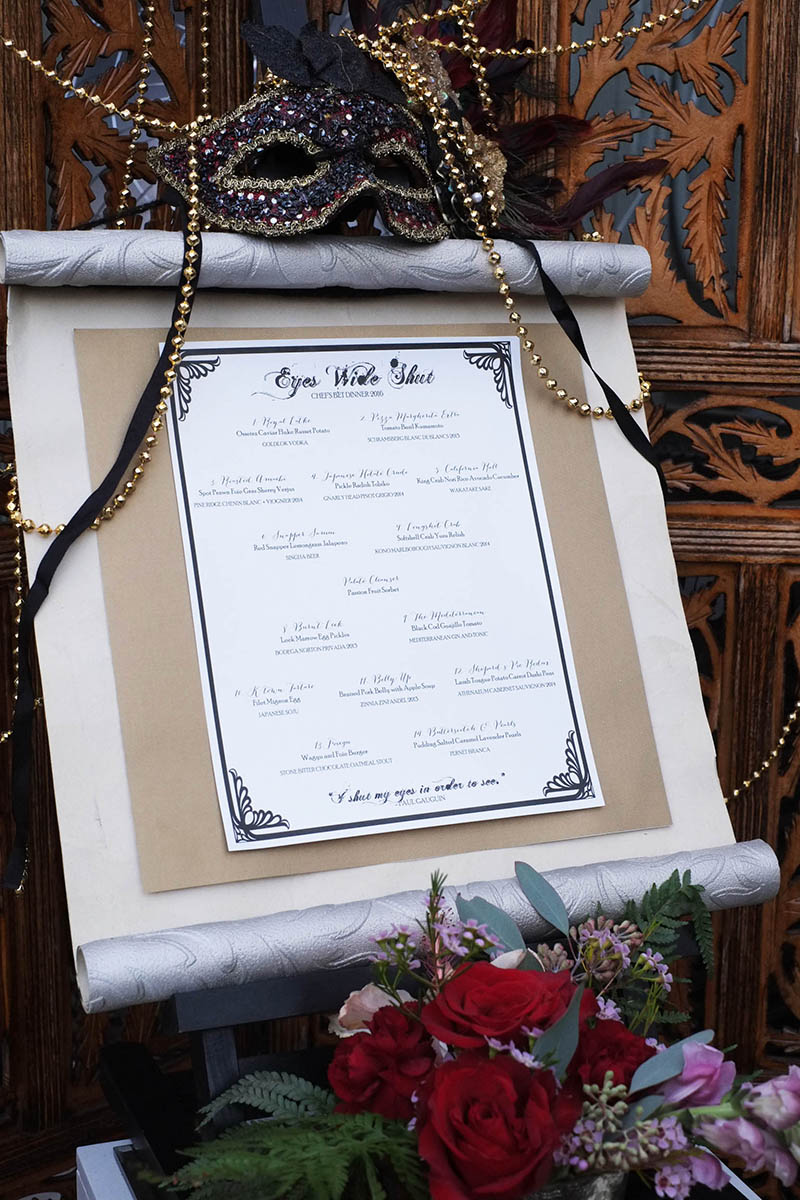 Eyes Wide Shut
CHEF'S BET DINNER 2016
1. Royal Latke
Ossetra Caviar Huko Russet Potato
GOLDLOK VODKA
2. Pizza Margherita Extra
Tomato Basil Kumamoto
SCHRAMSBERG BLANC DE BLANCS 2013
3. Roasted
Spot Prawn Foie Gras Sherry Verjus
PINE RIDGE CHENIN BLANC + VIOGNIER 2014
4. Japanese Potato
Pickle Radish Tobiko
GNARLY HEAD PINOT GRIGIO 2014
5. California Roll
King Crab Nori Rice Avocado Cucumber
WAKATAKE SAKE
6. Snapper
Red Snapper Lemongrass Jalapeno
SINGHA BEER
7. Longshot Crab
Softshell Crab Yuzu Relish
KONO MARLBOROUGH SAUVIGNON BLANC 2014
Palate Cleanser
Passion Fruit Sorbet
8. Burnt Leek
Leek Marrow Egg Pickles
BODEGA NORTON PRIVADA 2013
9. The Mediterranean
Black Cod Guajillo Tomato
MEDITERRANEAN GIN AND TONIC
K town Tartare
Filet Mignon Egg
JAPANESE SOJU
11. Belly Up
Braised Pork Belly with Apple Soup
ZINNIA ZINFANDEL 2013
12. Shepard's Pie
Lamb Tongue Potato Carrot Dashi Peas
ATHENAEUM CABERNET SAUVIGNON 2014
13.
Wagyu and Foie Burger
STONE BITTER CHOCOLATE OATMEAL STOUT
14. Butterscotch & Pearls
Pudding Salted Caramel Lavender Pearls
FERNET BRANCA
"I shut my eyes in order to see."
- PAUL GAUGUIN